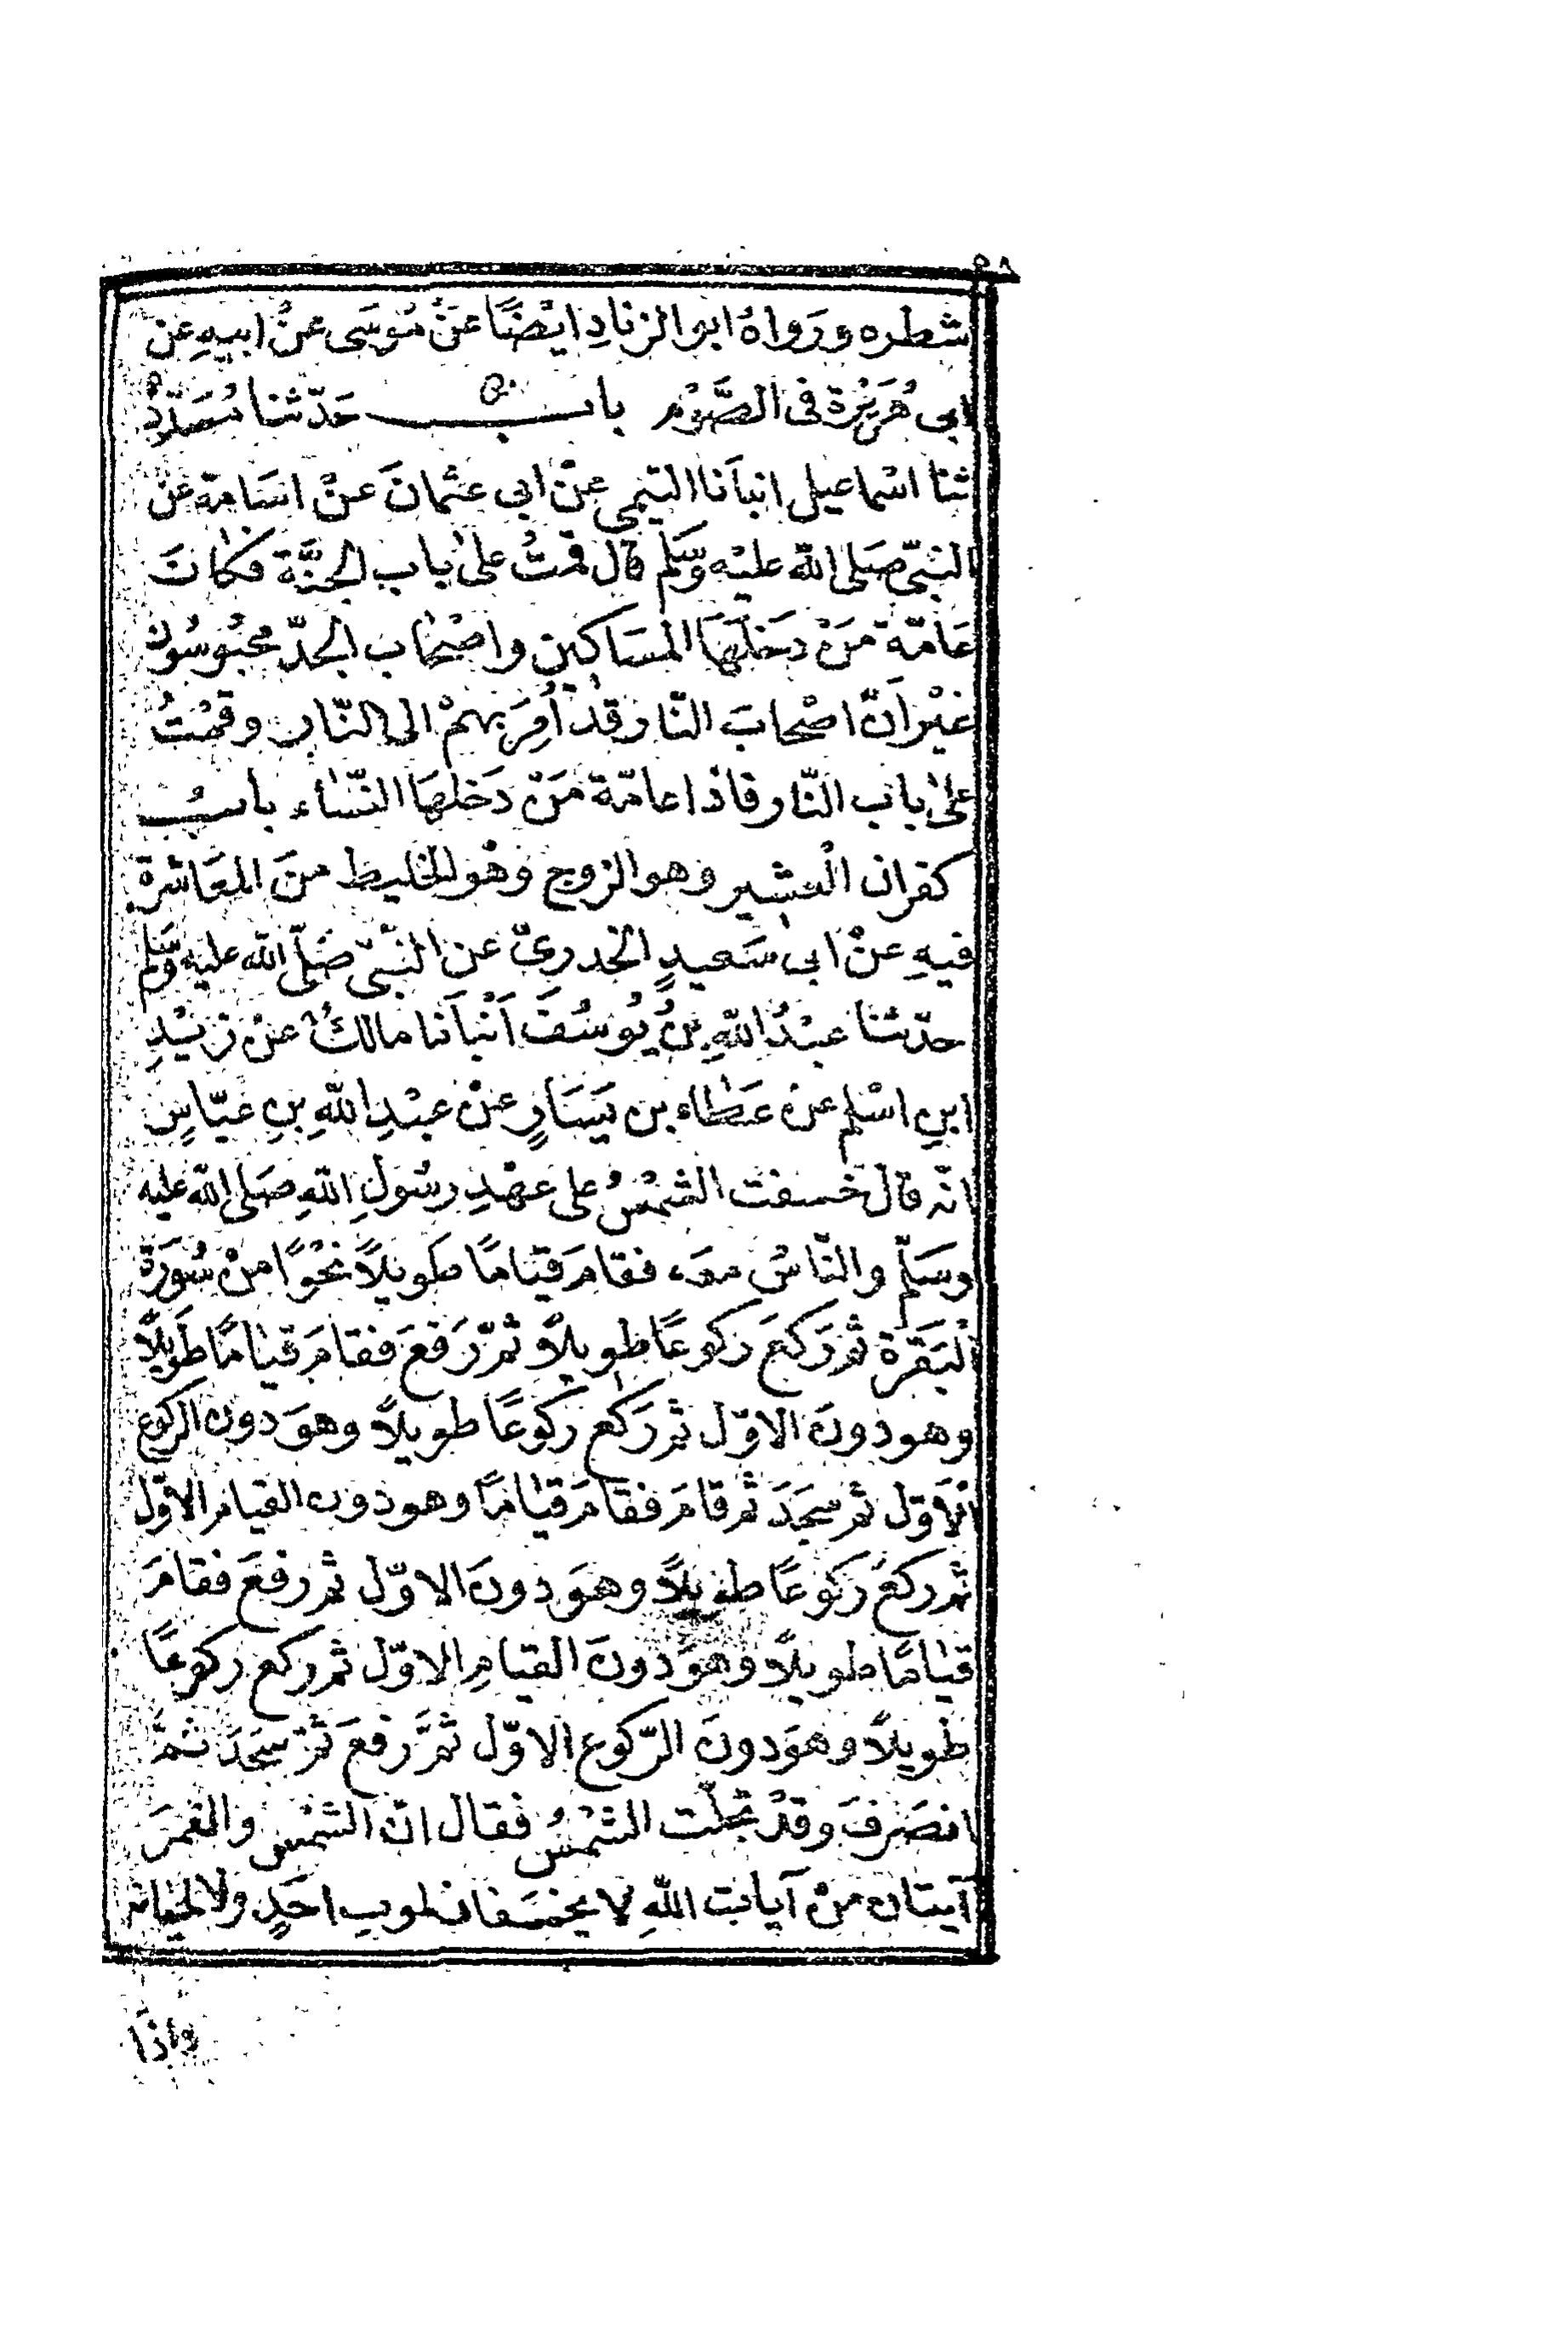 ٥٨
شطره ورَواهُ ابو الزنادِ ايْضًا عَنْ مُوسَى عنْ ابيهِ عن
ابى هُرَيْرَة فى الصَّوْم بابــــــ حَدّثنا مُسَدّدٌ
ثنا اسْماعيل انبآنا التيْمى عنْ ابى عثمانَ عنْ اسَامة عنْ
النبّىّ صَلى الله عليْه وَسَلّم قال قمتُ على باب الجنَّة فكانَ
عَامّة مَنْ دَخلهَا المسَاكين واصْحاب الجدّ محبُوسُون
غيْر انّ اصْحابَ النّار قدْ اُمِرَ بهمْ الى النّار وقمْتُ
على باب النّار فاذا عامّة مَنْ دَخلهَا النّسَاء بابُ
كفران العشير وهو الزوج وهو الخليط منَ المعَاشرة
فيهِ عنْ ابى سَعيدٍ الخدرىّ عن النّبىّ صَلّى الله عليه وَسَلّم
حدّثنا عبْدُ اللهِ بنُ يُوسُفَ اَنْبآنا مالكٌ عنْ زيْدِ
ابنِ اسْلم عنْ عَطاء بن يَسَارٍ عنْ عبْدِ اللهِ بنِ عبّاسٍ
انّه قال خسفت الشمْسُ على عهْدِ رسُولِ اللهِ صَلى الله عليه
وسَلّم والنّاسُ معَه فقامَ قيَامًا طويلاً نحْوًا منْ سُورَة
البَقَرَة ثم رَكعَ ركوعًا طويلاً ثمّ رَفعَ فقامَ قيامًا طَويلاً
وهو دونَ الاوّل ثم رَكع ركوعًا طويلاً وهوَ دون الركوع
الاَوّل ثم سجَدَ ثم قامَ فقامَ قيامًا وهو دون القيام الاوّل
ثم ركعَ ركوعًا طويلاً وهوَ دونَ الاوّل ثم رفعَ فقامَ
قيامًا طويلاً وهوَ دونَ القيامِ الاوّل ثم ركع ركوعًا
طويلاً وهوَ دونَ الرّكوع الاوّل ثمَّ رفعَ ثم سَجَدَ ثمّ
انصَرفَ وقدْ تجلّت الشمْسُ فقال انّ الشمْس والقمرَ
آيتان منْ آيات اللهِ لا يخسَفان لموت احَدٍ ولا لحياته
واذا